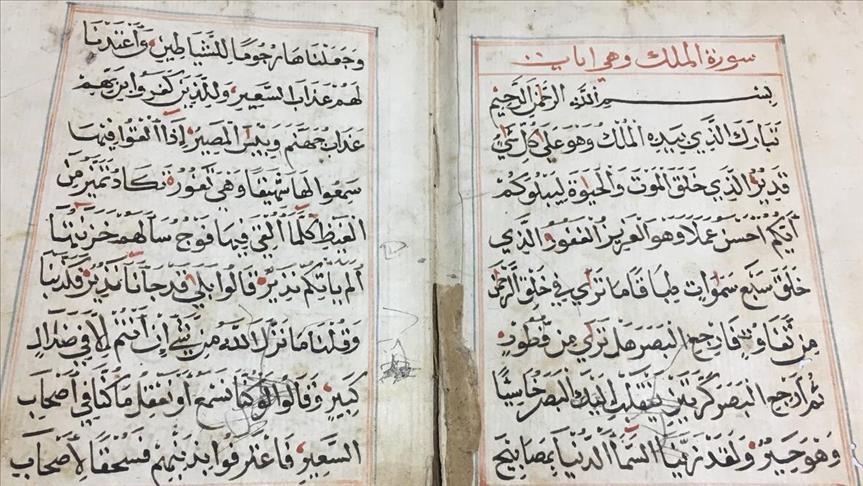 سورة الملك وهي ايات
بسم الله الرحمن الرحيم
تبارك الذي بيده الملك وهو على كل شئ
قدير الذي خلق الموت والحيوة ليبلوكم
أيكم احسن عملا وهو العزيز الغفور الذي
خلق سبع سموات طباقا ما ترى في خلق الرحمن
من تفاوت فارجع البصر هل ترى من فطور
ثم ارجع البصر كرتين ينقلب اليك البصر خاسئا
وهو حسير ولقد زينا السمآ الدنيا بمصابيح
وجعلناها رجوما للشياطين وأعتدنا
لهم عذاب السعير وللذين كفروا بربهم
عذاب جهنم وبئس المصير إذا ألقوا فيها
سمعوا لها شهيقا وهي تفور تكاد تميز من
الغيظ كلما ألقي فيها فوج سألهم خزنتها
ألم ياتكم نذير قالوا بلى قد جآنا نذير فكذبنا
وقلنا ما نزل الله من شئ إن أنتم إلا في ضلال
كبير وقالوا لو كنا نسمع أو نعقل ما كنا في أصحاب
السعير فاعترفوا بذنبهم فسحقا لأصحاب